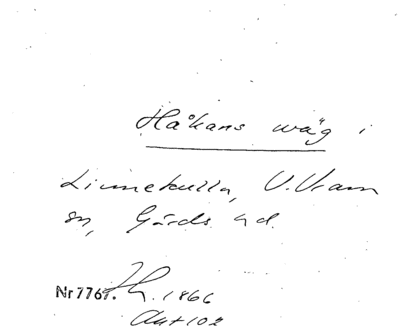 Håkans wäg i
Linnekulla, V. Vram
sn, Gärds hd.
Nr 7767. 1866
Akt 102